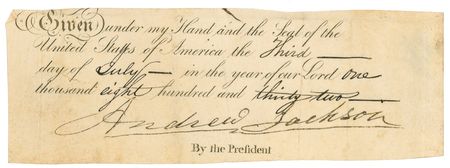 Given under my Hand and the Seal of the
United States of America the Third
day of July in the year of our Lord one
thousand eight hundred and thirty two
Andrew Jackson
By the President